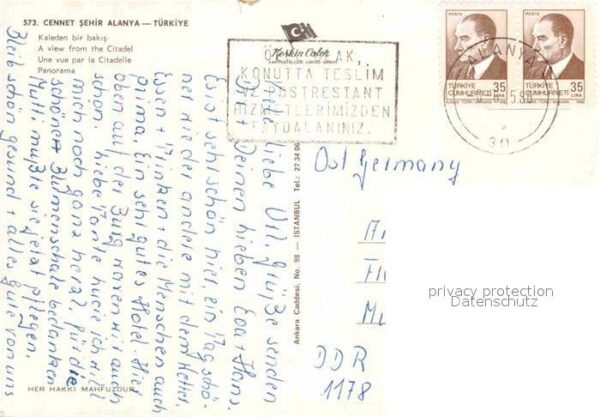 573. CENNET ŞEHİR ALANYA — TÜRKİYE
Kaleden bir bakış
A view from the Citadel
Une vue par la Citadelle
Panorama
Keskin Color
KONUTTA TESLİM
VE POSTRESTANT
HİZMETLERİMİZDEN
FAYDALANINIZ.
POSTA
TÜRKİYE
CUMHURİYETİ
35
LİRA
POSTA
TÜRKİYE
CUMHURİYETİ
35
LİRA
ALANYA
liebe Grüße senden
Deinen lieben Eva + Hans.
Es ist sehr schön hier, ein Tag schö-
ner wie der andere mit dem Wetter,
Essen + Trinken + die Menschen auch
prima, Ein sehr gutes Hotel. Hier
oben auf der Burg waren wir auch
schon. liebe Tante Lucie ich will
mich noch ganz herzl. für die
schönen Blumenschale bedanken
Mutti mußte sie jetzt pflegen.
Bleib schön gesund + alles gute von uns
Ankara Caddesi, No. 98 — İSTANBUL Tel.: 27 34 06
Ost Germany
DDR
1178
privacy protection
Datenschutz
HER HAKKI MAHFUZDUR